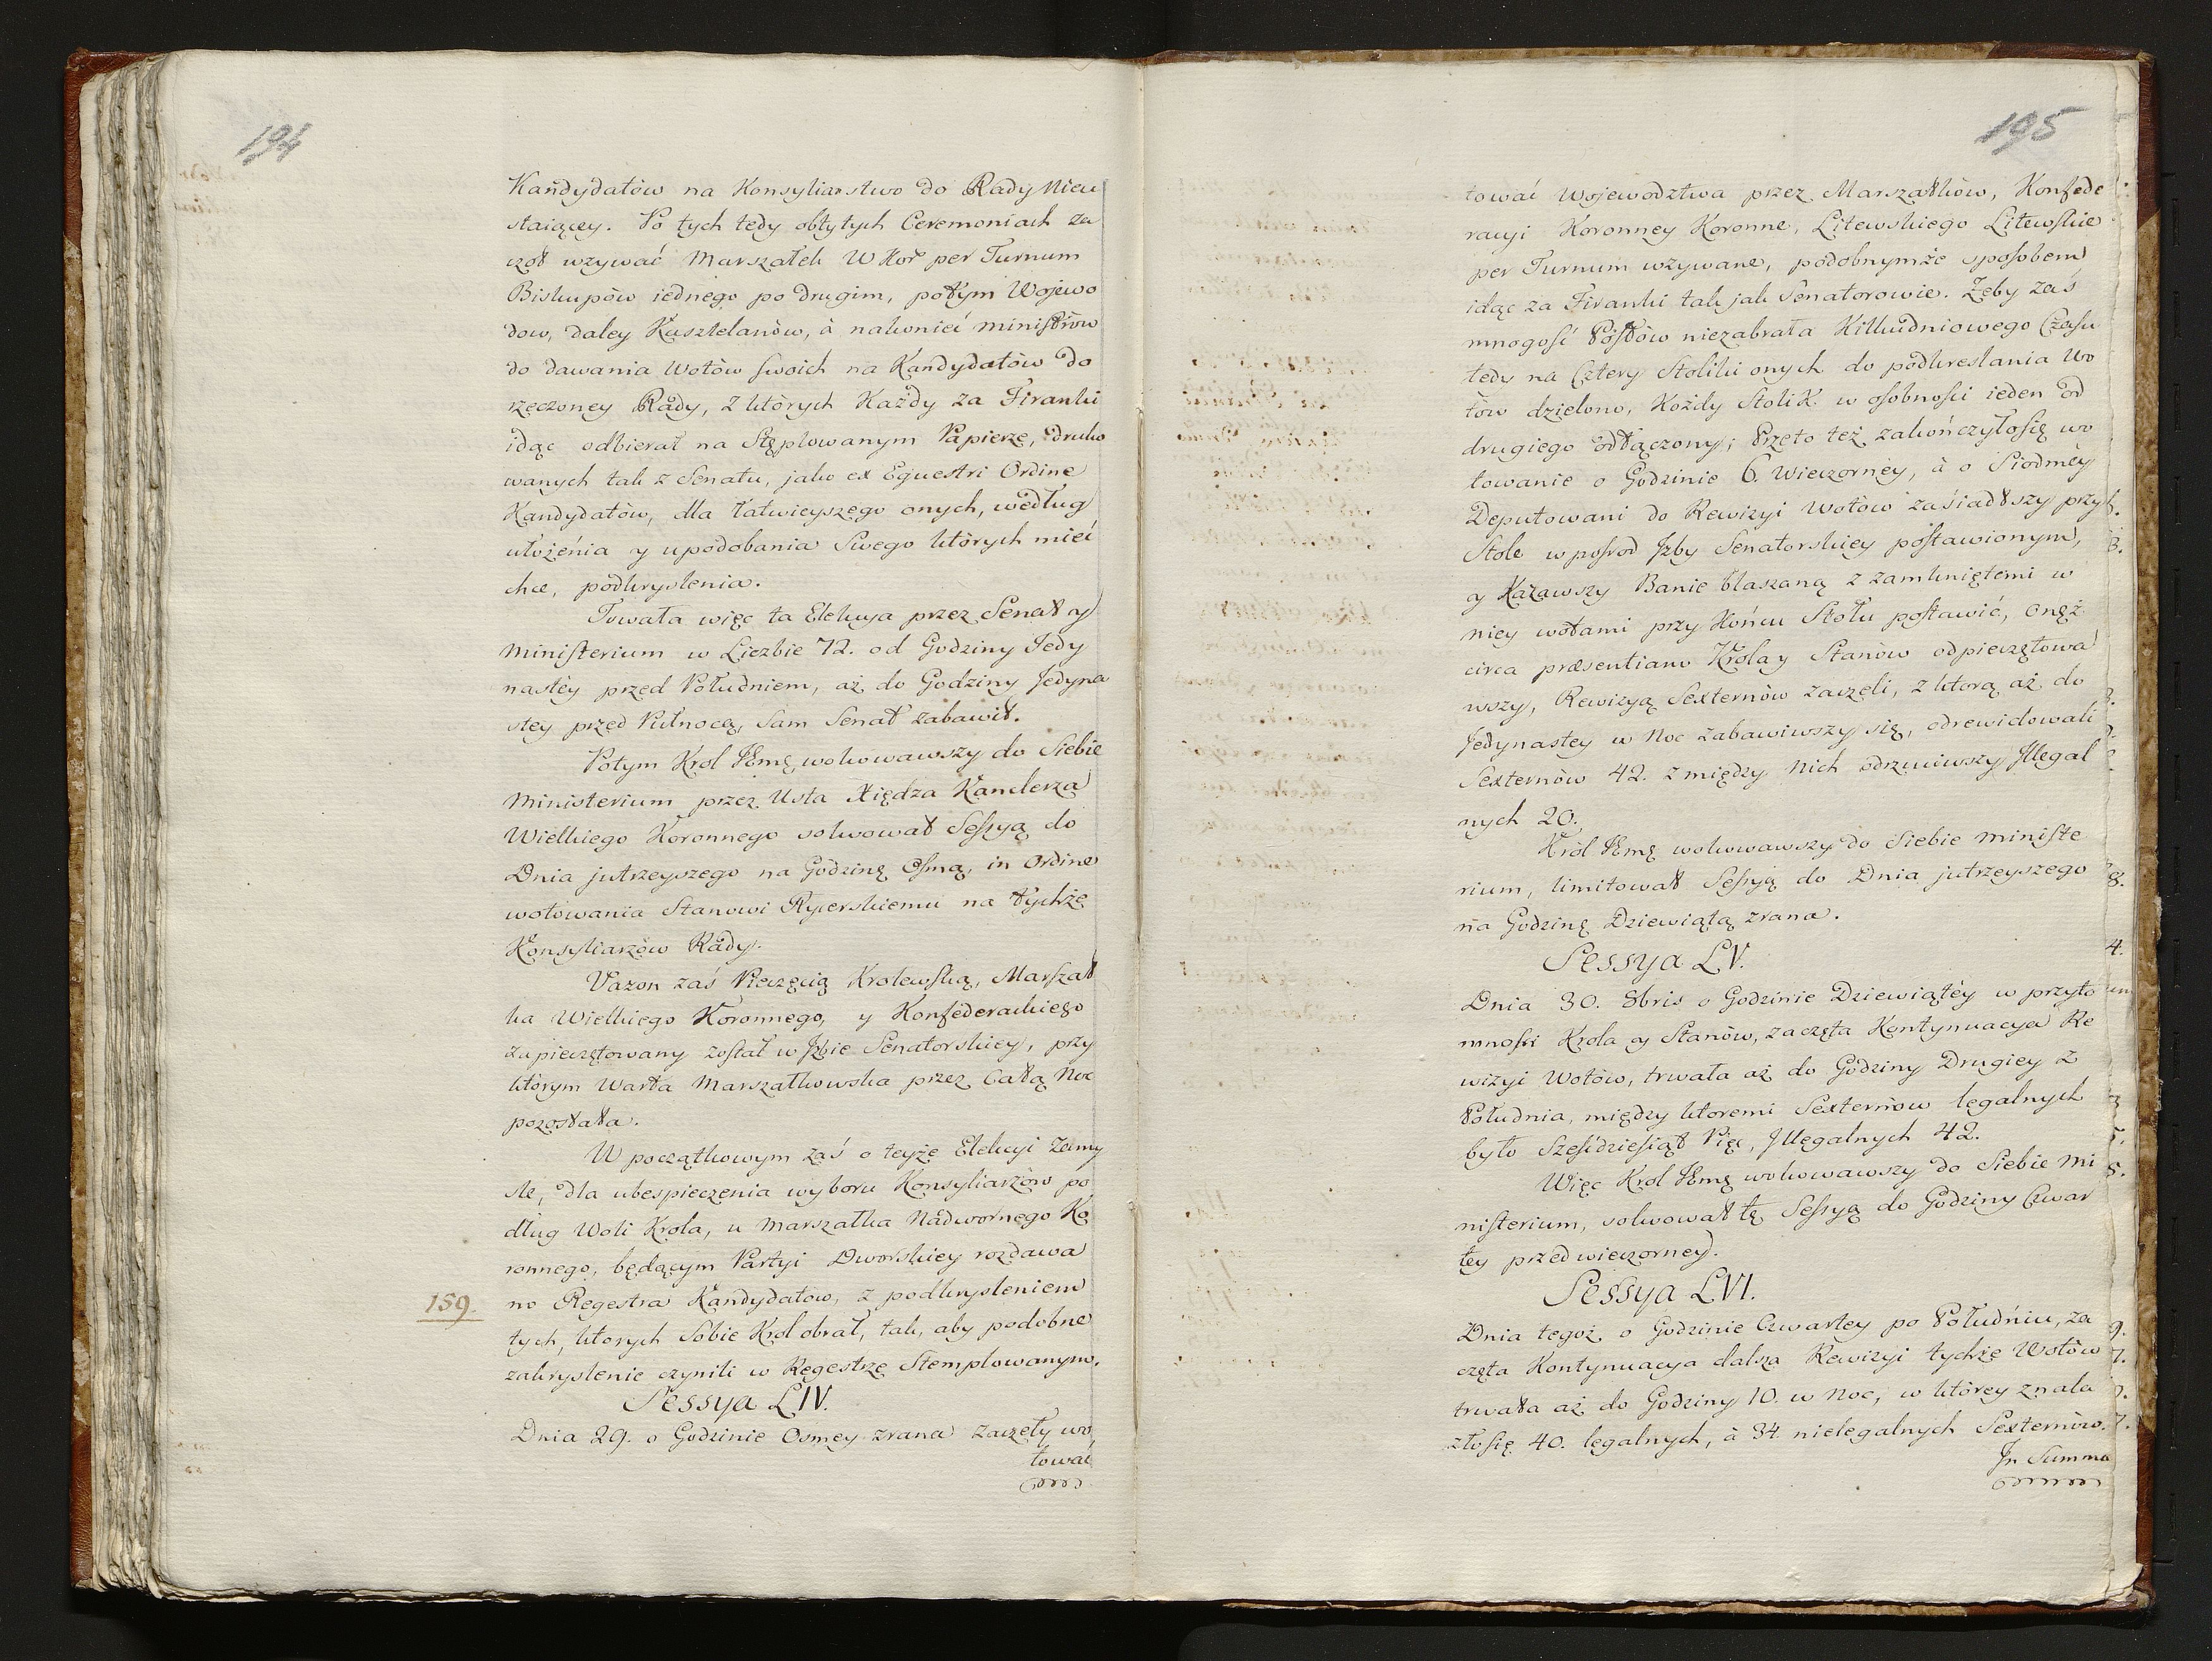 194
Kandydatòw na Konsyliarstwo do Rady Nieu
staiącey. Po tych tedy obtytych Ceremoniach za
czoł wzywać Marszałek W Kor per Turnum
Biskupòw iednego po drugim, potym Wojewo
dow, daley Kasztelanòw, à nakonieć ministròw
do dawania Wotòw swoich na Kandydatòw do
rzeczoney Rady, z ktòrych Każdy za Firanki
idąc odbierał na Stęplowanym Papierze, druko
wanych tak z Senatu, jako ex Equestri Ordine
Kandydatòw, dla łatwieyszego onych, według
ułożenia y upodobania Swego ktòrych mieć
chce, podkryslenia.
Trwała więc ta Elekcya przez Senat y
Ministerium w Liczbie 72. od Godziny Jedy
nastèy przed Południem, aż do Godziny Jedyna
stey przed Pułnocą, Sam Senat zabawił.
Potym Krol Jmę wokowawszy do Siebie
Ministerium przez Usta Xiędza Kanclerza
Wielkiego Koronnego solwował Sessyą do
Dnia jutrzeyszego na Godzinę Osmą, in Ordine
wotowania Stanowi Rycerskiemu na tychże
Konsyliarzòw Rady.
Vazon zaś Pieczęcią Krolewską, Marszał
ka Wielkiego Koronnego, y Konfederackiego
zapieczętowany został w Jzbie Senatorskiey, przy
ktòrym Warta Marszałkowska przez Całą Noc
pozostała.
W początkowym zaś o teyże Elekcyi Zamy
śle, dla ubespieczenia wyboru Konsyliarzòw po
dług Woli Krola, u Marszałka Nadwornego Ko
ronnego, będącym Partyi Dworskiey rozdawa
159. no Regestra Kandydatow, z podkrysleniem
tych, ktorych Sobie Krol obrał, tak, aby podobne
zakryslenie czynili w Regestrze Stemplowanym.
Sessya LIV.
Dnia 29. o Godzinie Osmey zrana zaczęły wo
tować
195
tować Wojewodztwa przez Marszałkòw, Konfede
racyi Koronney Koronne, Litewskiego Litewskie
per Turnum wzywane, podobnymże sposobem
idąc za Firanki tak jak Senatorowie. Zeby zaś
mnogość Posłòw niezabrała Kilkudniowego Czasu
tedy na Cztery Stoliki onych do podkreslania Wo
tòw dzielono, Każdy Stolik w osobności ieden od
drugiego odłączony; Przeto też zakończyłosię wo
towanie o Godzinie 6. Wieczornèy, à o Siodmèy
Deputowani do Rewizyi Wotòw zasiadszy przy
Stole w posrod Jzby Senatorskiey postawionym,
y Kazawszy Banie blaszaną z zamkniętemi w
niey wotami przy Końcu Stołu postawić, onęż
circa præsentiam Krola y Stanòw odpieczętowa
wszy, Rewizyą Sexternòw zaczęli, z ktorą aż do
Jedynastey w Noc zabawiwszy się, odrewidowali
Sexternòw 42. zmiędzy Nich odrzuciwszy Jllegal
nych 20.
Kròl Jmę wokowawszy do Siebie Ministe
rium, limitował Sessyą do Dnia jutrzeyszego
na Godzinę Dziewiątą zrana.
Sessya LV.
Dnia 30. 8bris o Godzinie Dziewiątèy w przyto
mności Krola y Stanòw, zaczęta Kontynuacya Re
wizyi Wotòw, trwała aż do Godziny Drugiey z
Południa, między ktoremi Sexternow legalnych
było Sześćdziesiąt Pięc, Jllegalnych 42.
Więc Krol Jmę wokowawszy do Siebie Mi
nisterium, solwował tę Sessyą do Godziny Czwar
tey przedwieczorney.
Sessya LVI.
Dnia tegoż o Godzinie Czwartey po Południu, za
częta Kontynuacya dalsza Rewizyi tychże Wotòw
trwała aż do Godziny 10. w Noc, w ktòrey znala
złosię 40. legalnych, à 34. nielegalnych Sexternòw.
Jn Summa